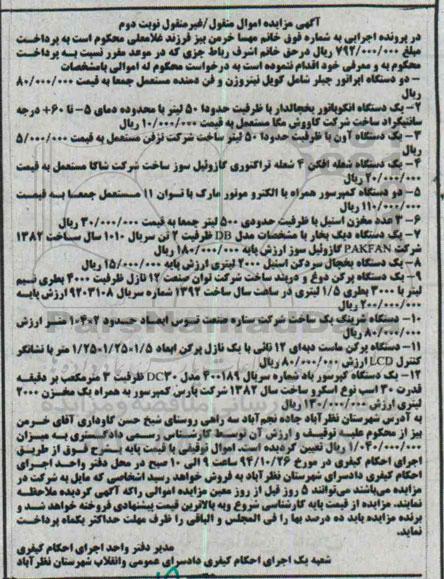 آگهی مزایده اموال منقول/غیرمنقول نوبت دوم
در پرونده اجرایی به شماره فوق خانم مهسا خرمن بیز فرزند غلامعلی محکوم است به پرداخت
مبلغ ۷۹۲/۰۰۰/۰۰۰ ریال درحق خانم اشرف رباط جزی که در موعد مقرر نسبت به پرداخت
محکوم به و معرفی خود اقدام ننموده است به درخواست محکوم له اموالی بامشخصات
– دو دستگاه اپراتور چیلر شامل کویل نیتروژن و فن دمنده مستعمل جمعا به قیمت ۸۰/۰۰۰/۰۰۰
ریال
۲- یک دستگاه انکوباتور یخچالدار با ظرفیت حدودا ۵۰ لیتر با محدوده دمای ۵– تا ۶۰+ درجه
سانتیگراد ساخت شرکت کاووش مگا مستعمل به قیمت ۱۰/۰۰۰/۰۰۰ ریال
۳- یک دستگاه آون با ظرفیت حدودا ۵۰ لیتر ساخت شرکت تزفن مستعمل به قیمت ۵/۰۰۰/۰۰۰
ریال
۴- یک دستگاه شعله افکن ۴ شعله تراکتوری گازوئیل سوز ساخت شرکت شاکا مستعمل به قیمت
۲۰/۰۰۰/۰۰۰ ریال
۵- دو دستگاه کمپرسور همراه با الکترو موتور مارک با توان ۱۱ مستعمل جمعا به قیمت
۱۱۰/۰۰۰/۰۰۰ ریال
۶- ۳ عدد مخزن استیل با ظرفیت حدودی ۵۰۰ لیتر جمعا به قیمت ۳۰/۰۰۰/۰۰۰ ریال
۷- یک دستگاه دیگ بخار با مشخصات مدل DB ظرفیت ۲ تن سریال ۱۰۱۰ سال ساخت ۱۳۸۲
شرکت PAKFAN گازوئیل سوز ارزش پایه ۱۸۰/۰۰۰/۰۰۰ ریال
۸- یک دستگاه یخچال سردکن استیل ۲۰۰۰ لیتری ارزش پایه ۱۵/۰۰۰/۰۰۰ ریال
۹- یک دستگاه پرکن دوغ و دربند ساخت شرکت توان صنعت ۱۲ نازل ظرفیت ۴۰۰۰ بطری نیم
لیتر با ۳۰۰۰ بطری ۱/۵ لیتری در ساعت سال ساخت ۱۳۹۲ شماره سریال ۹۲۰۳۱۰۸ ارزش پایه
۲۰۰/۰۰۰/۰۰۰ ریال
۱۰- دستگاه شرینگ پک ساخت شرکت ستاره صنعت توس ابعاد حدود ۲×۳×۱ متر ارزش
۸۰/۰۰۰/۰۰۰ ریال
۱۱- دستگاه پرکن ماست دبه‌ای ۱۲ تائی با یک نازل پرکن ابعاد ۱/۵×۱/۲۵×۱/۲۵ متر با نشانگر
کنترل LCD ارزش ۸۰/۰۰۰/۰۰۰ ریال
۱۲- یک دستگاه کمپرسور باد شماره سریال ۱۸۹–۴ مدل DC۳۰ ظرفیت ۳ مترمکعب بر دقیقه
قدرت ۳۰ اسب نوع اسکرو ساخت سال ۱۳۸۲ شرکت پارس کمپرسور به همراه یک مخزن ۲۰۰۰
لیتری ارزش ۱۳۰/۰۰۰/۰۰۰ ریال
به آدرس شهرستان نظرآباد جاده نجم‌آباد سه راهی روستای شیخ حسن گاوداری آقای خرمن
بیز از محکوم علیه توقیف و ارزش آن توسط کارشناس رسمی دادگستری به میزان
۱/۰۳۰/۰۰۰/۰۰۰ ریال تعیین گردیده است. اموال توقیفی با قیمت پایه بشرح فوق از طریق
اجرای احکام کیفری در مورخ ۹۴/۱۰/۲۶ ساعت ۹ الی ۱۰ صبح در محل دفتر واحد اجرای
احکام کیفری دادسرای شهرستان نظرآباد به فروش خواهد رسید اشخاصی که مایل به شرکت در
مزایده می‌باشند می‌توانند ۵ روز قبل از روز معین مزایده اموالی راکه آگهی گردیده ملاحظه
نمایند. مزایده از قیمت پایه کارشناسی شروع وبه بالاترین قیمت پیشنهادی فروخته خواهد شد و
برنده مزایده باید ده درصد بها را فی المجلس و الباقی را ظرف مهلت حداکثر یکماه پرداخت
نماید.
مدیر دفتر واحد اجرای احکام کیفری
شعبه یک اجرای احکام کیفری دادسرای عمومی وانقلاب شهرستان نظرآباد